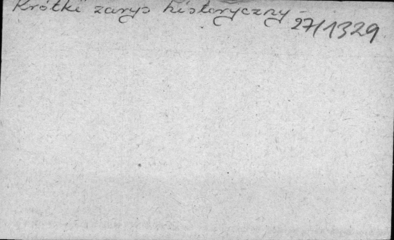 Krótki zarys historyczny
27/1329